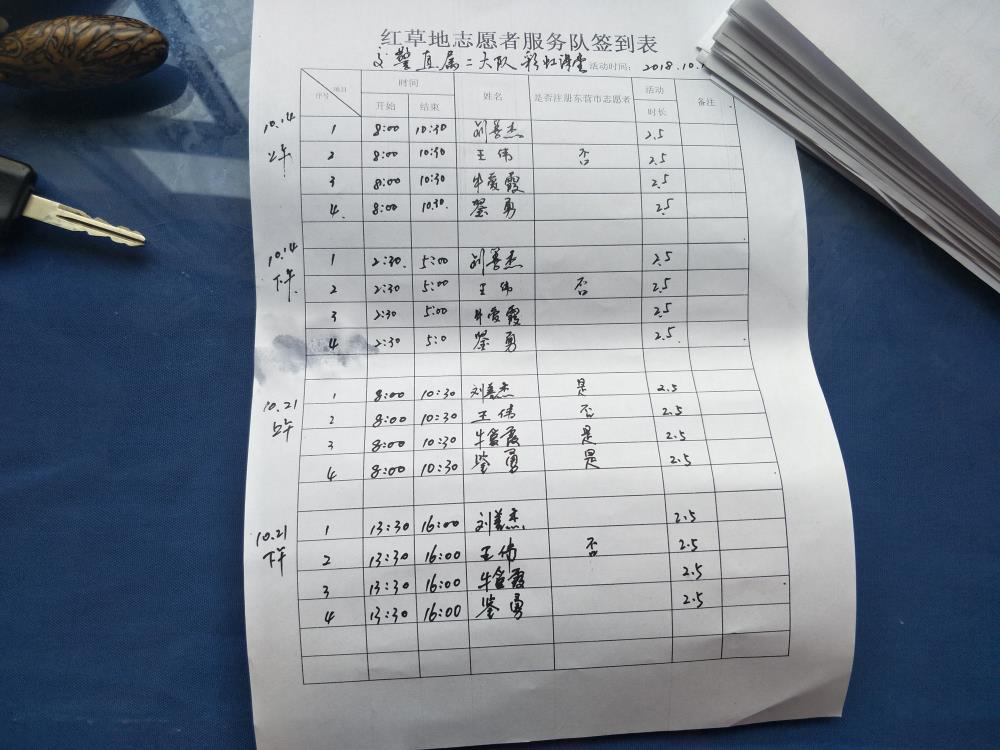 红草地志愿者服务队签到表
交警直属二大队 彩虹课堂 活动时间: 2018.10.1
项目 序号 时间 姓名 是否注册东营市志愿者 活动 备注
开始 结束 时长
10.14 上午
1 8:00 10:30 刘善杰 2.5
2 8:00 10:30 王伟 否 2.5
3 8:00 10:30 牛爱霞 2.5
4. 8:00 10.30. 勇 2.5
10.14 下午
1 2:30. 5:00 刘善杰 2.5
2 2:30 5:00 王伟 否 2.5
3 2:30 5:00 牛爱霞 2.5
4 2:30 5:0 勇 2.5.
10.21 上午
1 8:00 10:30 刘善杰 是 2.5
2 8:00 10:30 王伟 否 2.5
3 8:00 10:30 牛爱霞 是 2.5
4 8:00 10:30 勇 是 2.5
10.21 下午
1 13:30 16:00 刘善杰 2.5
2 13:30 16:00 王伟 否 2.5
3 13:30 16:00 牛爱霞 2.5
4 13:30 16:00 勇 2.5